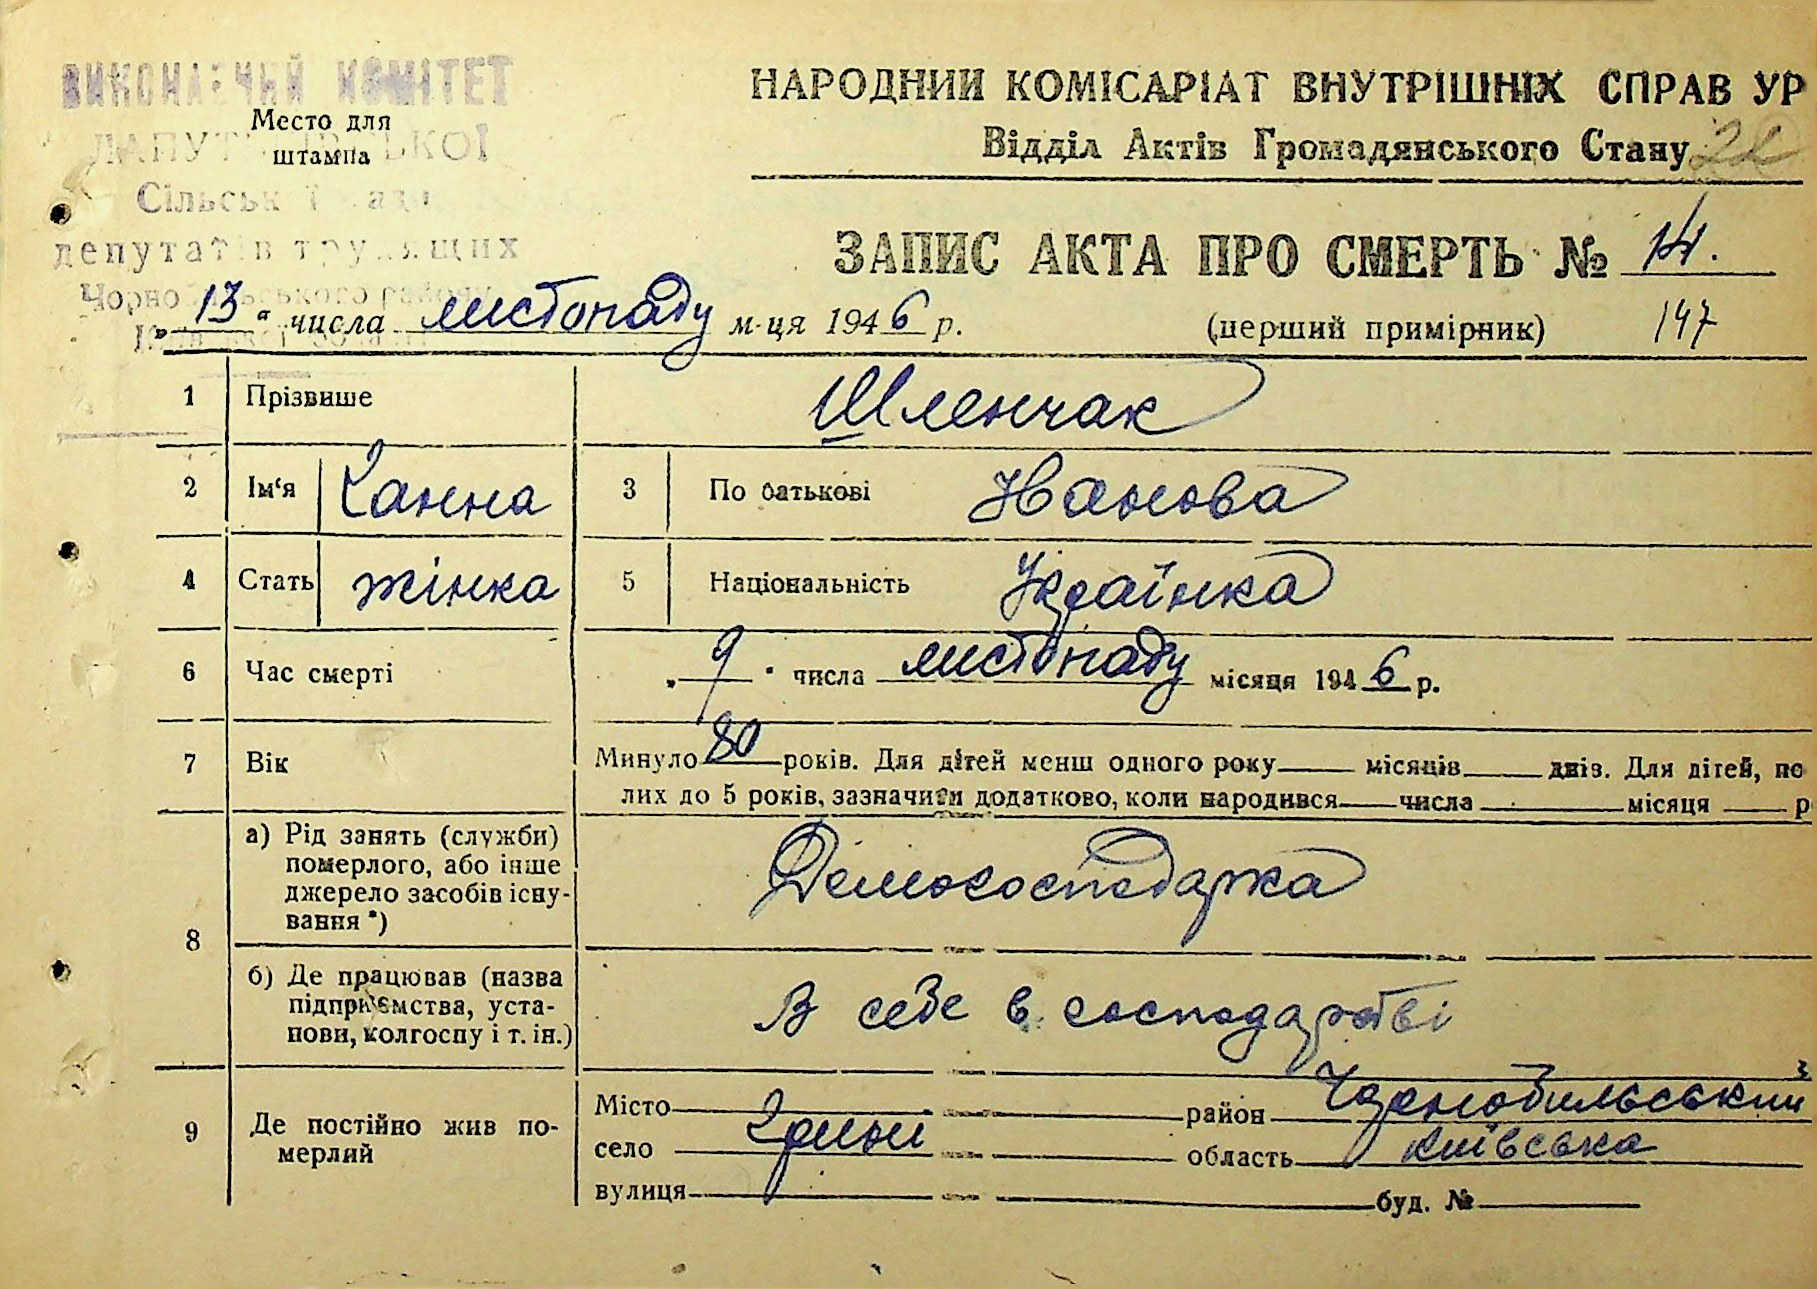 ВИКОНАВЧИЙ КОМІТЕТ
Место для
штампа
Сільської Ради
депутатів трудящих
Чорнобильського району
НАРОДНИЙ КОМІСАРІАТ ВНУТРІШНІХ СПРАВ УР
Відділ Актів Громадянського Стану 22
ЗАПИС АКТА ПРО СМЕРТЬ № 14.
„13“ числа листопаду м-ця 1946 р. (перший примірник) 147
1 Прізвише Шленчак
2 Ім‘я Ганна 3 По батькові Іванова
4 Стать жінка 5 Національність Українка
6 Час смерті „9“ числа листопаду місяця 1946 р.
7 Вік Минуло 80 років. Для дітей менш одного року місяців днів. Для дітей, по
лих до 5 років, зазначити додатково, коли народився числа місяця р
8 а) Рід занять (служби)
померлого, або інше
джерело засобів існу-
вання *) Домогосподарка
б) Де працював (назва
підприємства, уста-
нови, колгоспу і т. ін.) В себе в господарстві
9 Де постійно жив по-
мерлий
Місто район Чорнобильський
село Грини область Київська
вулиця буд. №